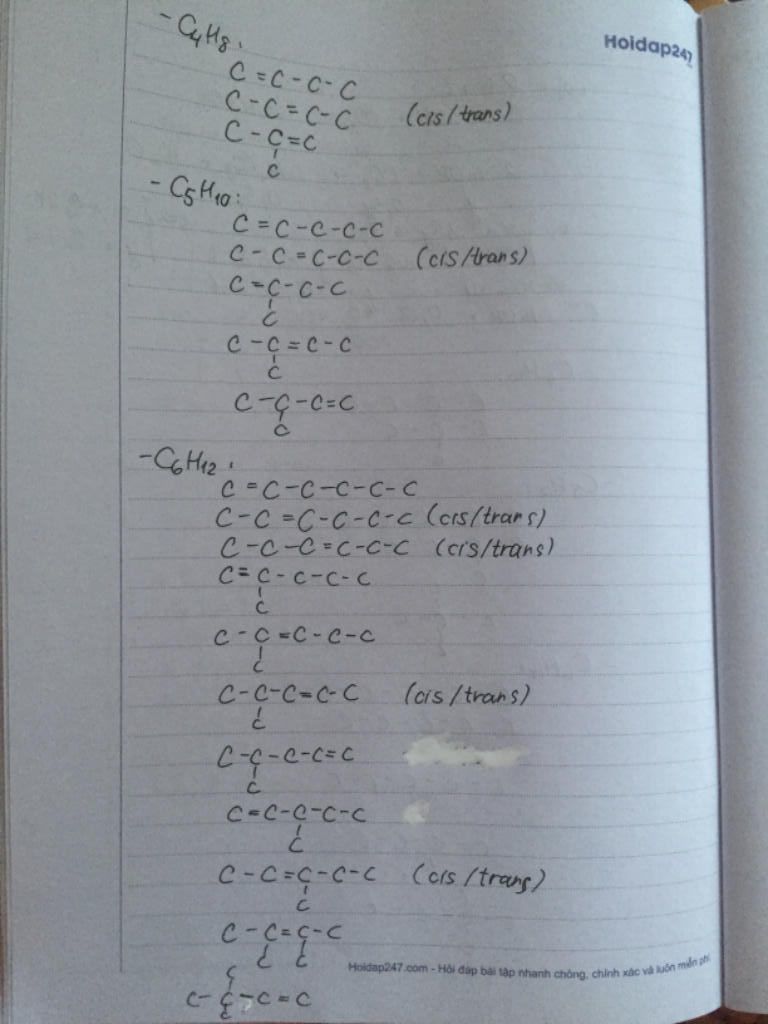 Hoidap247
- C4H8:
C = C - C - C
C - C = C - C (cis/trans)
C - C = C
C
- C5H10:
C = C - C - C - C
C - C = C - C - C (cis/trans)
C = C - C - C
C
C - C = C - C
C
C - C - C = C
C
- C6H12:
C = C - C - C - C - C
C - C = C - C - C - C (cis/trans)
C - C - C = C - C - C (cis/trans)
C = C - C - C - C
C
C - C = C - C - C
C
C - C - C = C - C (cis/trans)
C
C - C - C - C = C
C
C = C - C - C - C
C
C - C = C - C - C (cis/trans)
C
C - C = C - C
C C
C
C - C - C = C
C
Hoidap247.com - Hỏi đáp bài tập nhanh chóng, chính xác và luôn miễn phí